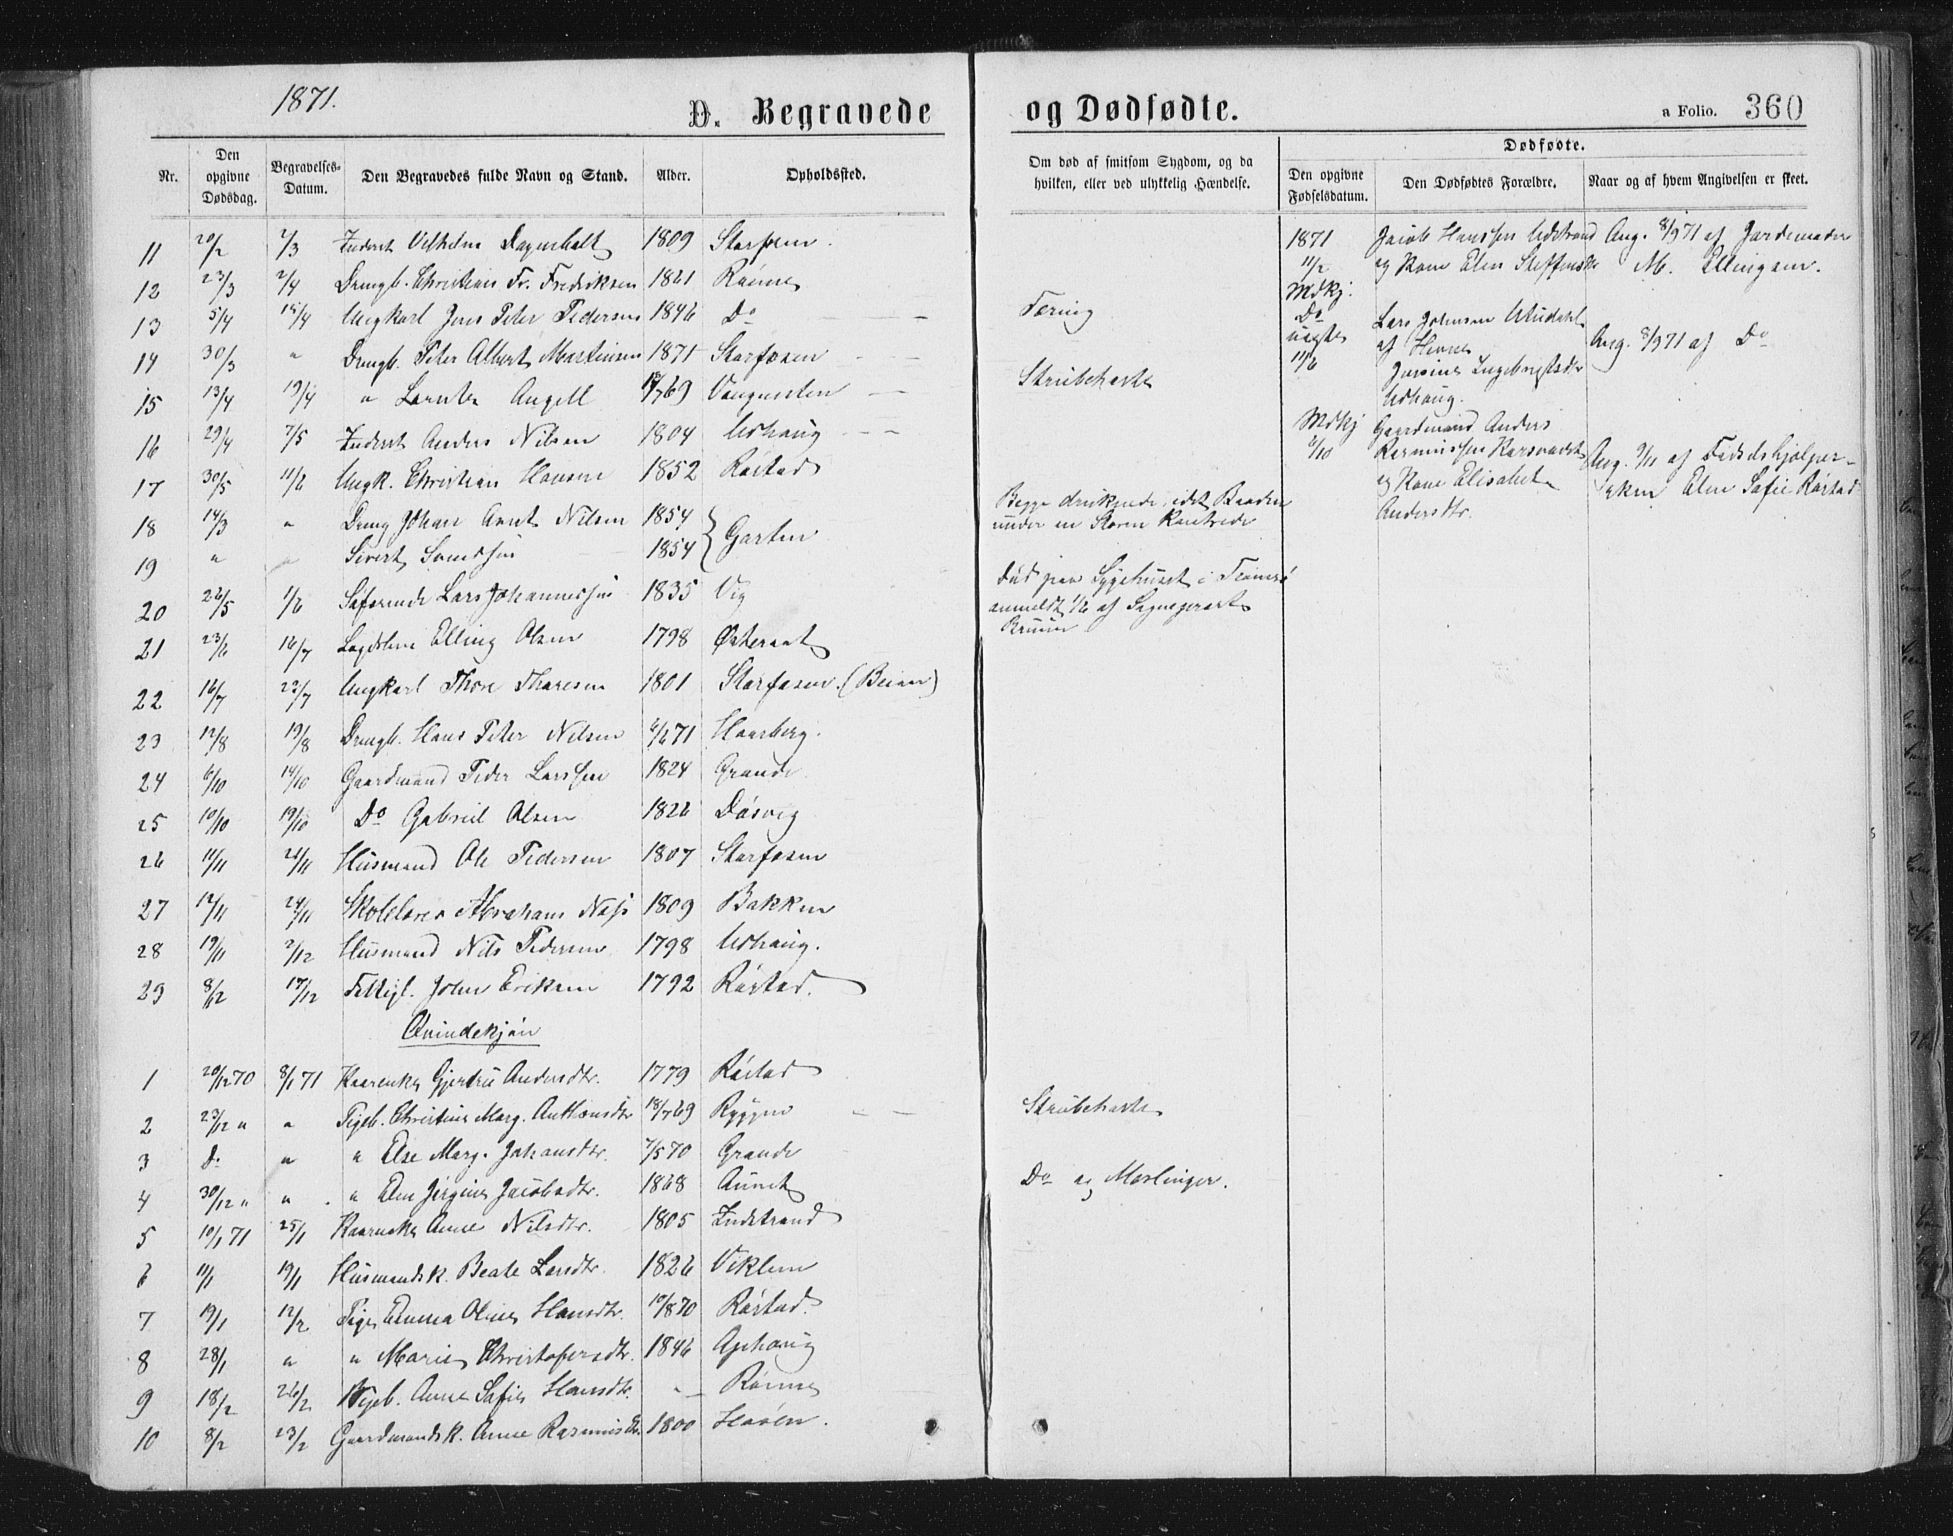 1871.
D. Begravede og Dødfødte.
a Folio. 360
Nr.
Den opgivne Dødsdag.
Begravelses-Datum.
Den Begravedes fulde Navn og Stand.
Alder.
Opholdssted.
Om død af smitsom Sygdom, og da hvilken, eller ved ulykkelig Hændelse.
Dødfødte.
Den opgivne Fødselsdatum.
Den Dødfødtes Forældre.
Naar og af hvem Angivelsen er skeet.
11 20/2 2/3 Inderst Vilhelm 1809 Storfosen.
12 23/3 2/4 Drengb. Christian Fr. Fredriksen 1861 Rønne
13 5/4 15/4 Ungkarl Jens Peter Pedersen 1846 Do Tæring
14 30/3 " Drengb. Peter Albert Martinsen 1871 Storfosen
15 13/4 19/4 " Lorents Angell 69 Strubehoste
16 29/4 7/5 Inderst Anders Nilsen 1804 Udhaug
17 30/5 11/6 Ungk. Christian Hansen 1852 Røstad
18 14/3 " Dreng Johan Arnt Nilsen 1854 Garten Begge druknede, idet Baaden under en Storm kantrede
19 " " Sivert 1854
20 22/5 1/6 Søfarende Lars Johannessen 1835 Vig Død paa Sygehuset i Tromsø
anmeldt 1/6 af
21 23/6 16/7 Lægdslem Elling Olsen 1798 Østeraat
22 16/7 22/7 Ungkarl Thore Thoresen 1801 Storfosen.
23 12/8 19/8 Drengb. Hans Peter Nilsen 6/6 71 Hoosberg.
24 6/10 14/10 Gaardmand Peder Larssen 1824 Grande.
25 10/10 19/10 Do Gabriel Olsen 1826 Døsvig
26 14/11 21/11 Husmand Ole Pedersen 1807 Storfosen
27 12/11 24/11 Skolelærer Abraham 1809 Bakken
28 19/11 2/12 Husmand Nils Pedersen 1798 Udhaug.
29 8/12 17/12 Fattigl. John Eriksen 1792 Røstad.
Qvindekjøn
1 20/12 70 8/1 71 Kaarenke Gjertru Andersdtr. 1779 Røstad
2 23/12 " " Pigeb. Christine Marg. Anthonsdtr 18/7 69 Ryggen Strubehoste
3 Do " " Else Marg. Johansdtr. 7/5 70 Grande
4 30/12 " " " Elen Jørgine Jacobsdtr. 1868 Aunet Do og Meslinger.
5 10/1 71 25/1 Kaarenke Anne Nilsdtr. 1805 Indstrand
6 11/1 19/1 Husmandsk. Beate Larsdtr. 1826 Viklem
7 19/1 12/2 Pige Emma Oline Hansdtr. 10/8 70 Røstad.
8 28/1 " " Marie Christofersdtr. 1846 Ophaug
9 18/2 26/2 Pigeb. Anne Sofie Hansdtr. " Rønne
10 8/2 23/2 Gaardmandsk. Anne Rasmusdtr. 1800 Hoøen.
1871 11/2 Mdkj. Jacob Hanssen Udstrand og Kone Elen Ang. 8/9 71 af Jordemoder M. Ellingsen.
Do uægte 11/6 Lars Johnsen af Hevne Ingebrigtsdtr Udhaug. Ang. 8/9 71 af Do
Mdkj 2/10 Gaardmand Anders Rasmussen og Kone Elisabet Andersdtr. Ang. 9/11 af Fødselshjelpersken Elen Sofie Røstad